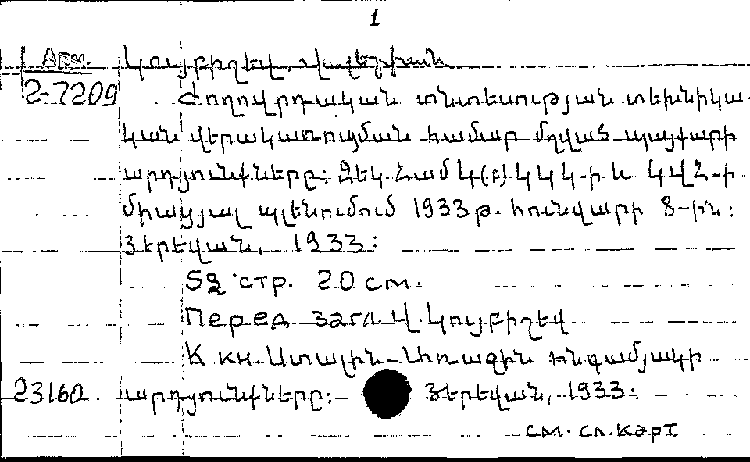 1
Арм. Կույբիշև, Վալերիան
2-7209 Ժողովրդական տնտեսության տեխնիկա-
կան վերակառուցման համար մղված պայքարի
արդյունքները: Զեկ. Համ Կ(բ)ԿԿԿ-ի և ԿՎՀ-ի
միացյալ պլենումում 1933թ. հունվարի 8-ին:
Յերեվան, 1933:
52 стр. 20 см.
Перед загл Վ. Կույբիշեվ
К кн Ստալին Առաջին հնգամյակի
23160 արդյունքները: Յերեվան, 1933:
см. сл. карт